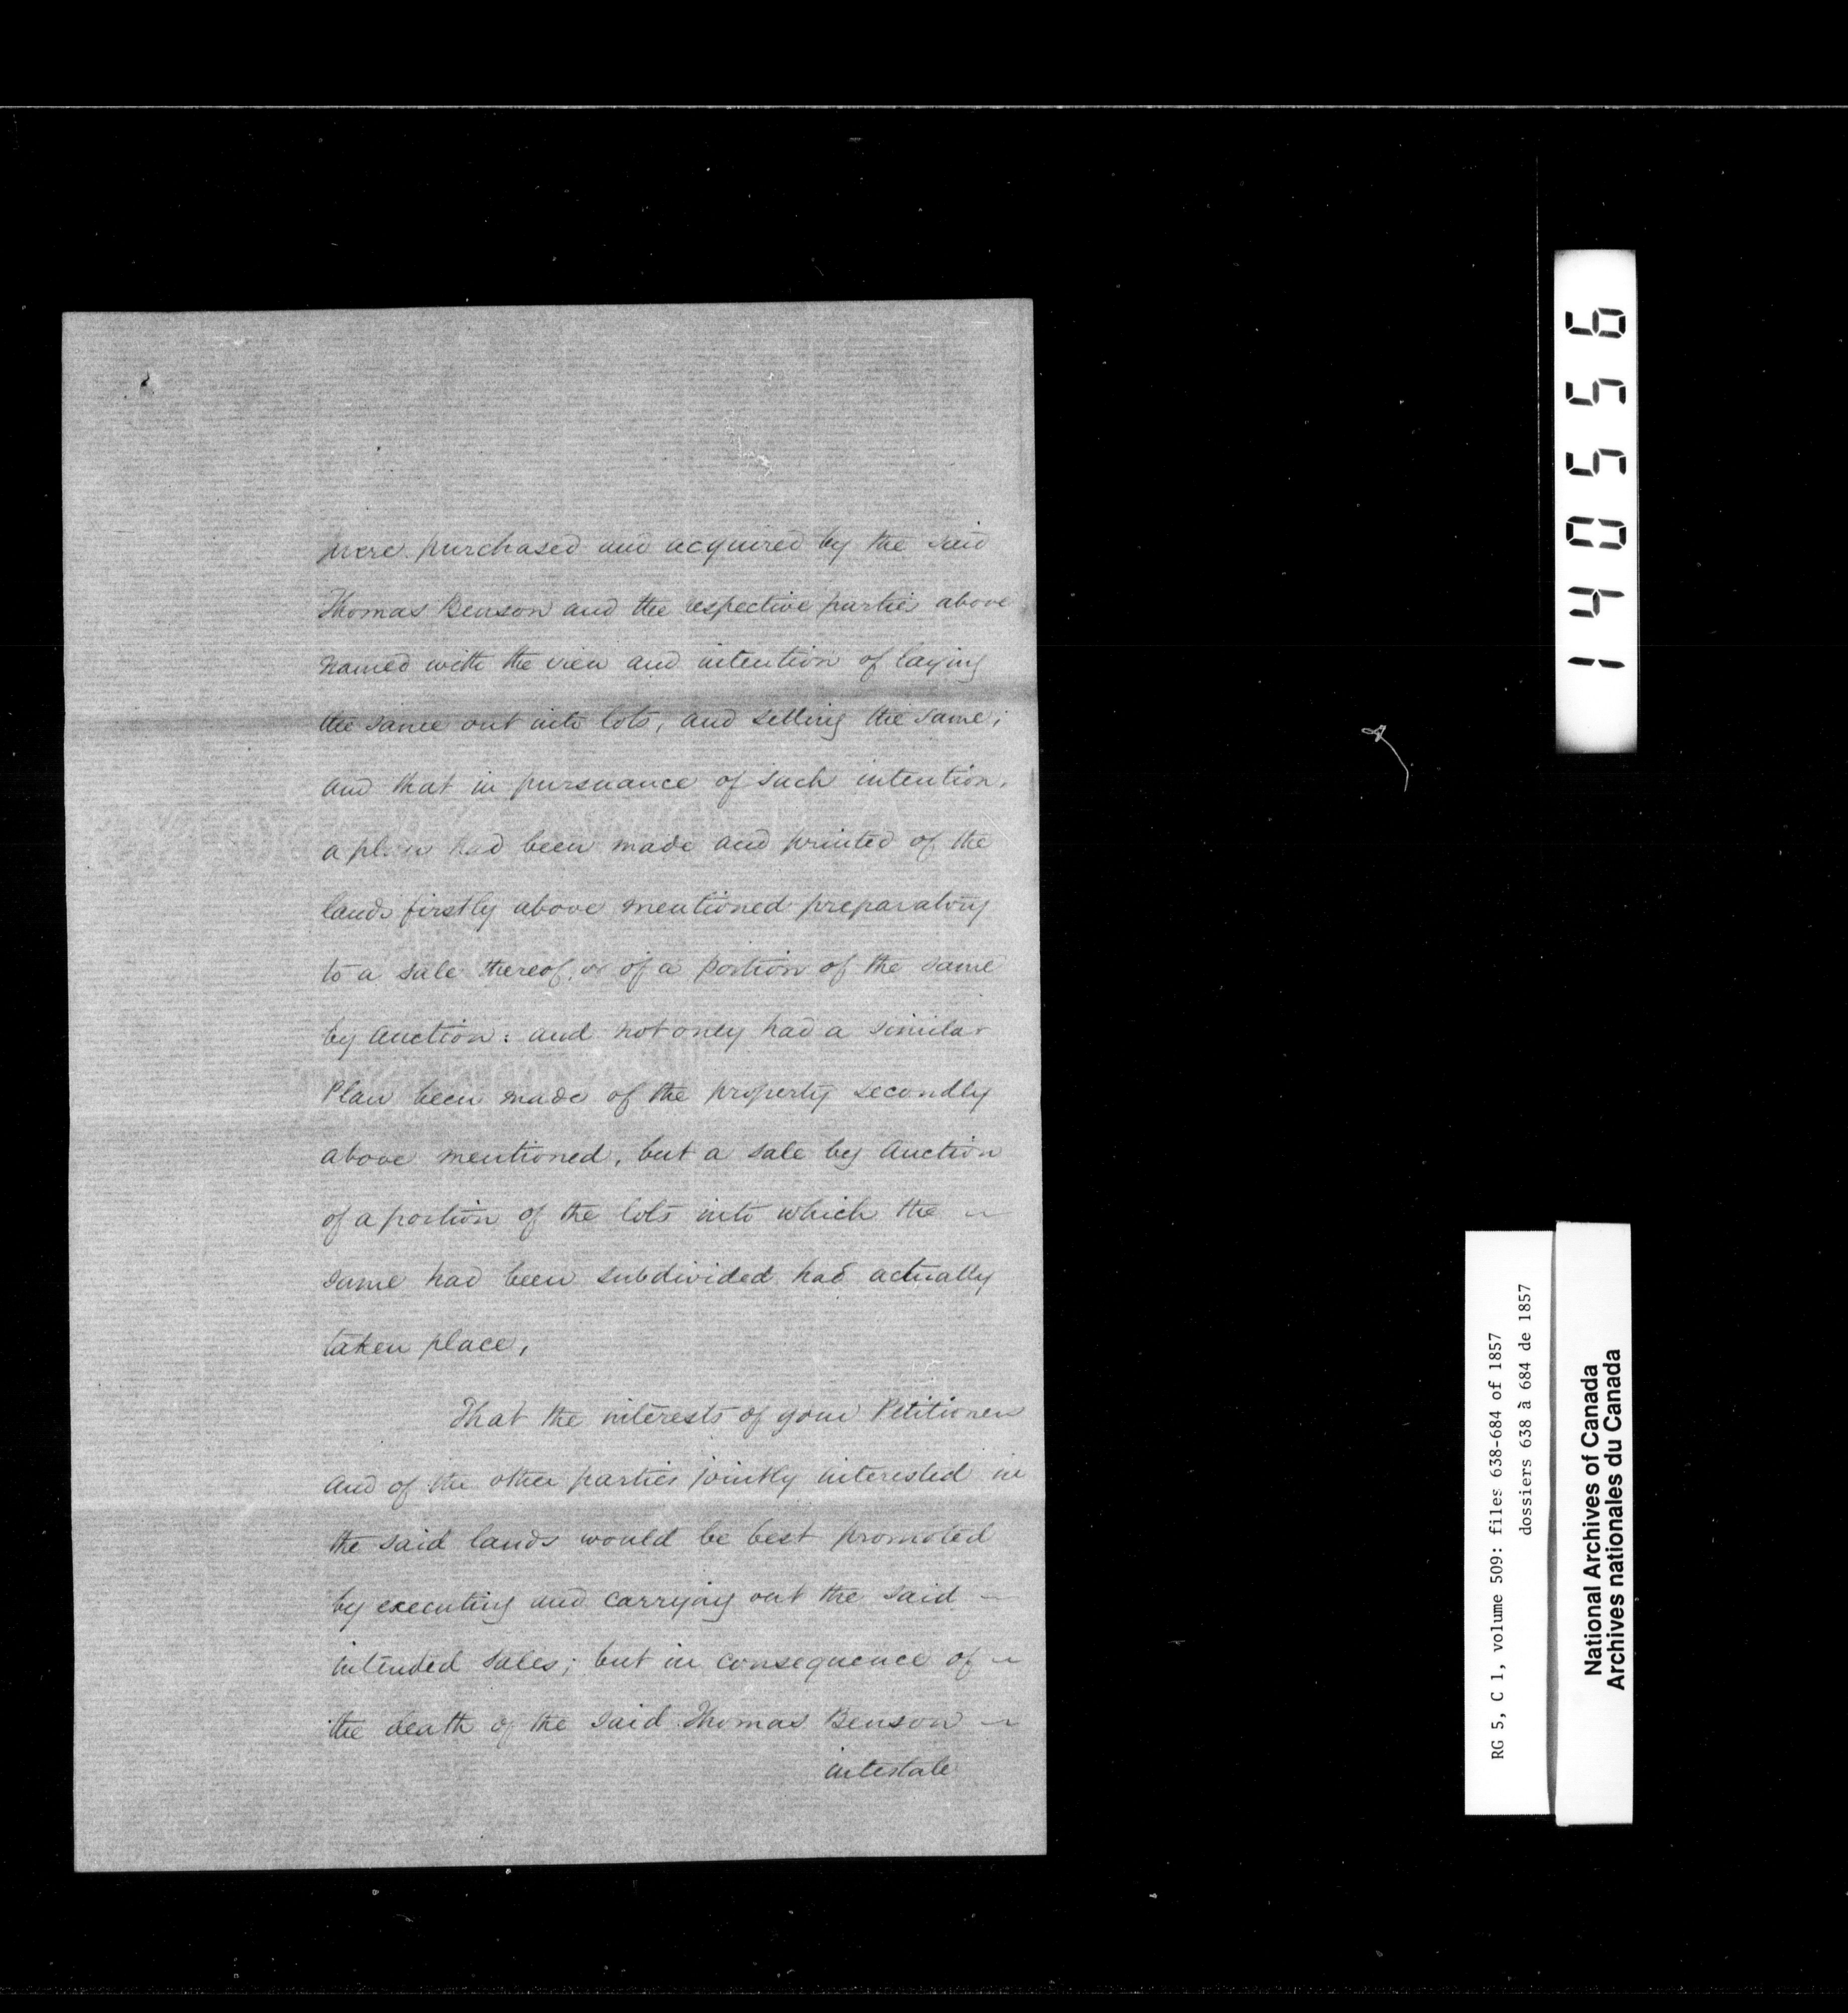 were purchased and acquired by the said
Thomas Benson and the respective parties above
named with the view and intention of laying
the same out into lots, and selling the same;
and that in pursuance of such intention,
a plan had been made and printed of the
lands firstly above mentioned preparatory
to a sale thereof, or of a portion of the same
by auction: and not only had a similar
Plan been made of the property secondly
above mentioned, but a sale by Auction
of a portion of the lots into which the ~
same had been subdivided had actually
taken place,
That the interests of your Petitioners
and of the other parties jointly interested in
the said lands would be best promoted
by executing and carrying out the said ~
intended sales; but in consequence of ~
the death of the said Thomas Benson ~
intestate
140556
RG 5, C 1, volume 509: files 638-684 of 1857
dossiers 638 à 684 de 1857
National Archives of Canada
Archives nationales du Canada